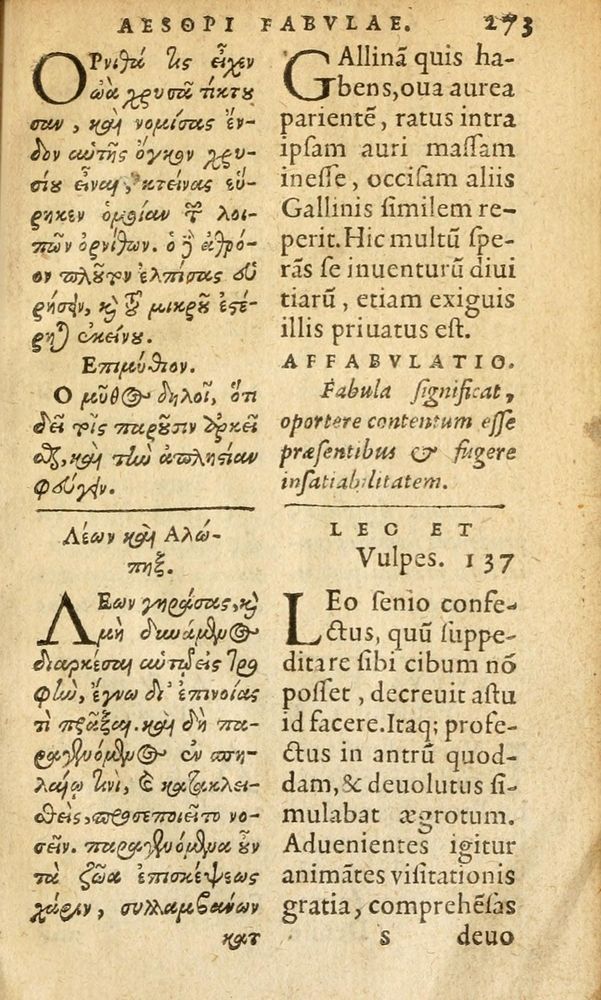 AESOPI FABVLAE. 273
ΟΡνιθά τις εἶχεν
ὠὰ χρυσᾶ τίκτου
σαν, καὶ νομίσας ἔν-
δον αὐτῆς ὄγκον χρυ-
σίου εἶναι, κτείνας εὕ-
ρηκεν ὁμοίαν τῶν λοι-
πῶν ὀρνίθων. ὁ δὲ ἀθρό-
ον πλοῦτον ἐλπίσας εὑ
ρήσειν, καὶ τοῦ μικροῦ ἐστέ-
ρητο ἐκείνου.
Επιμύθιον.
Ο μῦθος δηλοῖ, ὅτι
δεῖ τοῖς παροῦσιν ἀρκεῖ
σθαι, καὶ τὴν ἀπληστίαν
φεύγειν.
Λέων καὶ Αλώ-
πηξ.
ΛΕων γηράσας, καὶ
μὴ δυνάμενος
διαρκέσαι αὑτῷ εἰς τρο
φὴν, ἔγνω δι' ἐπινοίας
τὶ πρᾶξαι. καὶ δὴ πα-
ραγενόμενος ἐν σπη-
λαίῳ τινὶ, καὶ κατακλει-
σθεὶς, προσεποιεῖτο νο-
σεῖν. παραγενόμενα οὖν
τὰ ζῶα ἐπισκέψεως
χάριν, συλλαμβάνων
κατ
GAllinā quis ha-
bens, oua aurea
parientē, ratus intra
ipſam auri maſſam
ineſſe, occiſam aliis
Gallinis ſimilem re-
perit. Hic multū ſpe-
rās ſe inuenturū diui
tiarū, etiam exiguis
illis priuatus eſt.
AFFABVLATIO.
Fabula ſignificat,
oportere contentum eſſe
præſentibus & fugere
inſatiabilitatem.
LEO ET
Vulpes. 137
LEo ſenio confe-
ctus, quū ſuppe-
ditare ſibi cibum nō
poſſet, decreuit aſtu
id facere. Itaq; profe-
ctus in antrū quod-
dam, & deuolutus ſi-
mulabat ægrotum.
Aduenientes igitur
animātes viſitationis
gratia, comprehēſas
s deuo